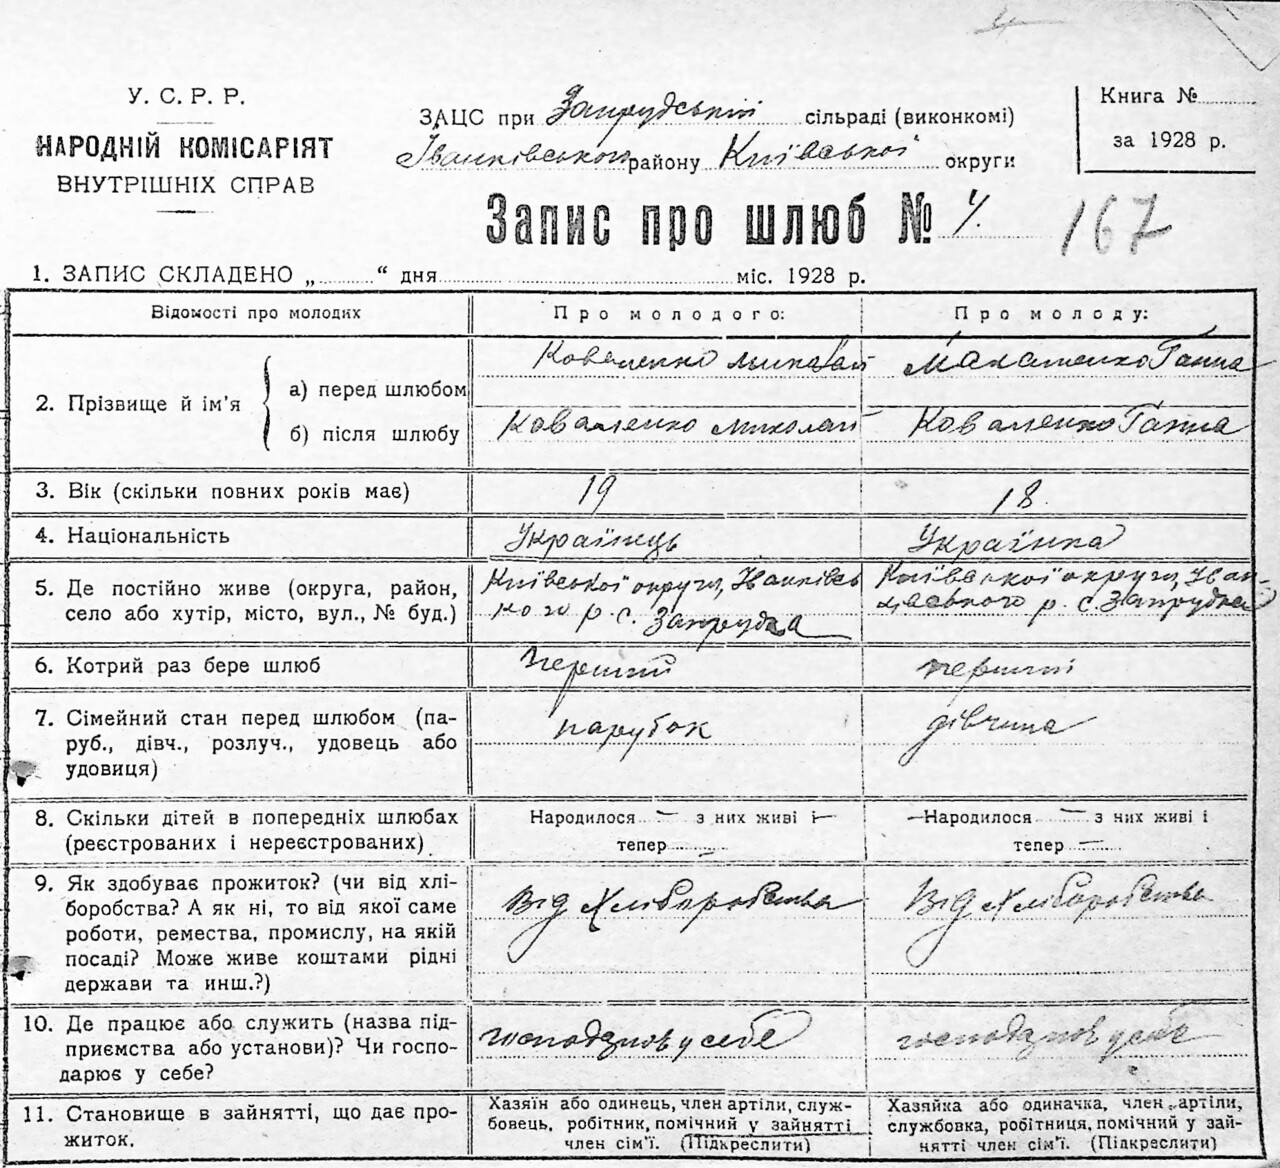 У. С. Р. Р.
НАРОДНІЙ КОМІСАРІЯТ
ВНУТРІШНІХ СПРАВ
ЗАЦС при Запрудській сільраді (виконкомі)
Іванківського району Київської округи
Книга №
за 1928 р.
Запис про шлюб № 4.
167
1. ЗАПИС СКЛАДЕНО „ “ дня міс. 1928 р.
Відомості про молодих
Про молодого:
Про молоду:
2. Прізвище й ім'я
а) перед шлюбом
Коваленко Миколай
Ганна
б) після шлюбу
Коваленко Миколай
Коваленко Ганна
3. Вік (скільки повних років має)
19
18.
4. Національність
Українець
Українка
5. Де постійно живе (округа, район,
село або хутір, місто, вул., № буд.)
Київської округи, Іванківсь
кого р. с. Запрудка
Київської округи, Іван-
ківського р. с. Запрудка
6. Котрий раз бере шлюб
перший
перший
7. Сімейний стан перед шлюбом (па-
руб., дівч., розлуч., удовець або
удовиця)
парубок
дівчина
8. Скільки дітей в попередніх шлюбах
(реєстрованих і нереєстрованих)
Народилося — з них живі і —
тепер —
— Народилося — з них живі і
тепер —
9. Як здобуває прожиток? (чи від хлі-
боробства? А як ні, то від якої саме
роботи, ремества, промислу, на якій
посаді? Може живе коштами рідні
держави та инш.?)
Від Хліборобства
Від Хліборобства
10. Де працює або служить (назва під-
приємства або установи)? Чи госпо-
дарює у себе?
у себе
у себе
11. Становище в зайнятті, що дає про-
житок.
Хазяїн або одинець, член артіли, служ-
бовець, робітник, помічний у зайнятті
член сім'ї. (Підкреслити)
Хазяйка або одиначка, член артіли,
службовка, робітниця, помічний у зай-
нятті член сім'ї. (Підкреслити)